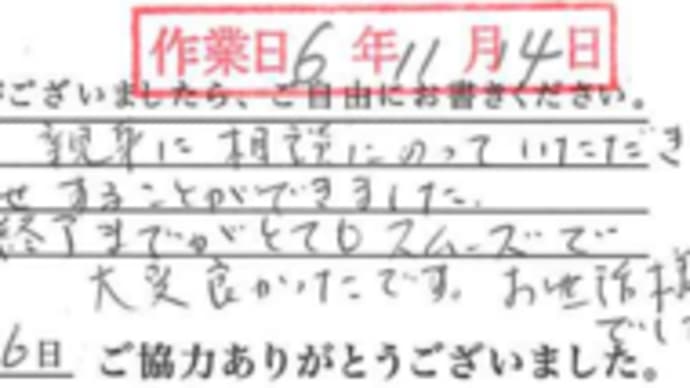 作業日6年11月14日
ございましたら、ご自由にお書きください。
親身に相談にのっていただき
せすることができました。
終了までがとてもスムーズで
大変良かったです。お世話様
でし
6日 ご協力ありがとうございました。